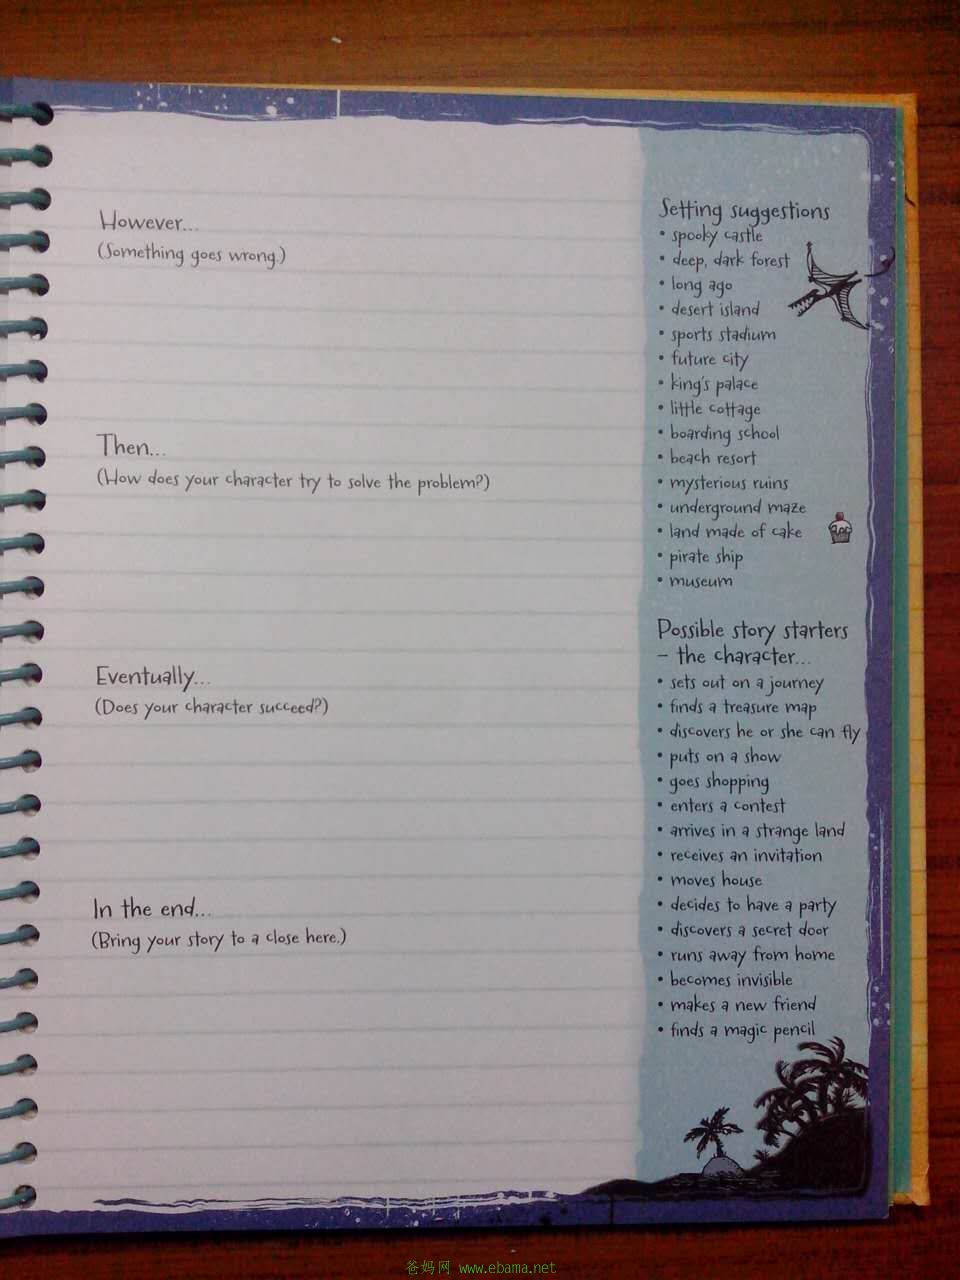 However...
(Something goes wrong.)
Then...
(How does your character try to solve the problem?)
Eventually...
(Does your character succeed?)
In the end...
(Bring your story to a close here.)
Setting suggestions
• spooky castle
• deep, dark forest
• long ago
• desert island
• sports stadium
• future city
• king's palace
• little cottage
• boarding school
• beach resort
• mysterious ruins
• underground maze
• land made of cake
• pirate ship
• museum
Possible story starters
– the character...
• sets out on a journey
• finds a treasure map
• discovers he or she can fly
• puts on a show
• goes shopping
• enters a contest
• arrives in a strange land
• receives an invitation
• moves house
• decides to have a party
• discovers a secret door
• runs away from home
• becomes invisible
• makes a new friend
• finds a magic pencil
爸妈网 www.ebama.net